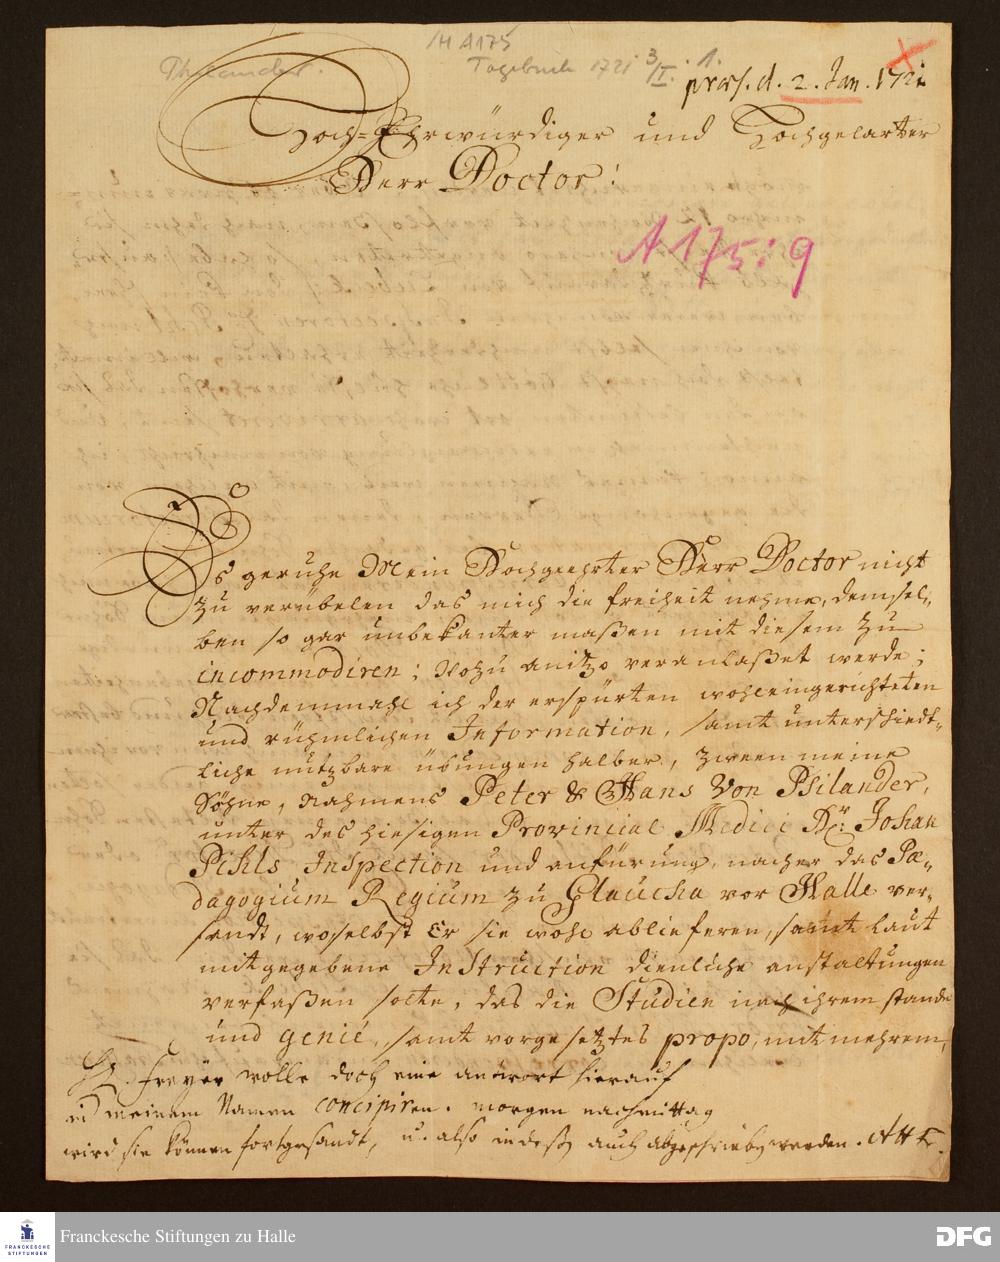 H A175
Tagebuch 1721 3/I. 1.
præs. d. 2. Jan. 1721
Hoch-Ehrwürdiger und Hochgelarter
Herr Doctor!
A 175:9
Es geruhe Mein Hochgeehrter Herr Doctor nicht
zu verübelen das mich die freiheit nehme, demsel-
ben so gar unbekanter maßen mit diesem zu
incommodiren; wozu anitzo veranlaßet werde;
Nachdemmahl ich der erspürten wohleingerichteten
und rühmlichen Information, samt unterschiedt-
liche nutzbare übungen halber, zween meine
Söhne, Nahmens Peter & Hans Von Psilander,
unter des hiesigen Provincial Medici Dr: Johan
Pihls Inspection und anfürung, nacher das Pæ-
dagogium Regium zu Glaucha vor Halle ver-
sandt, woselbst Er sie wohl ablieferen, samt laut
mitgegebene Instruction dienliche anstaltungen
verfaßen solte, das die Studien nach ihrem stande
und genie, samt vorgesetztes propo, mit mehrem,
H. Freyer wolle doch eine antwort hierauf
in meinem Namen concipiren. morgen nachmittag
wird sie können fortgesandt, u. also indeß auch abgeschrieben werden. AHF.
Franckesche Stiftungen zu Halle
FRANCKESCHE
STIFTUNGEN
DFG